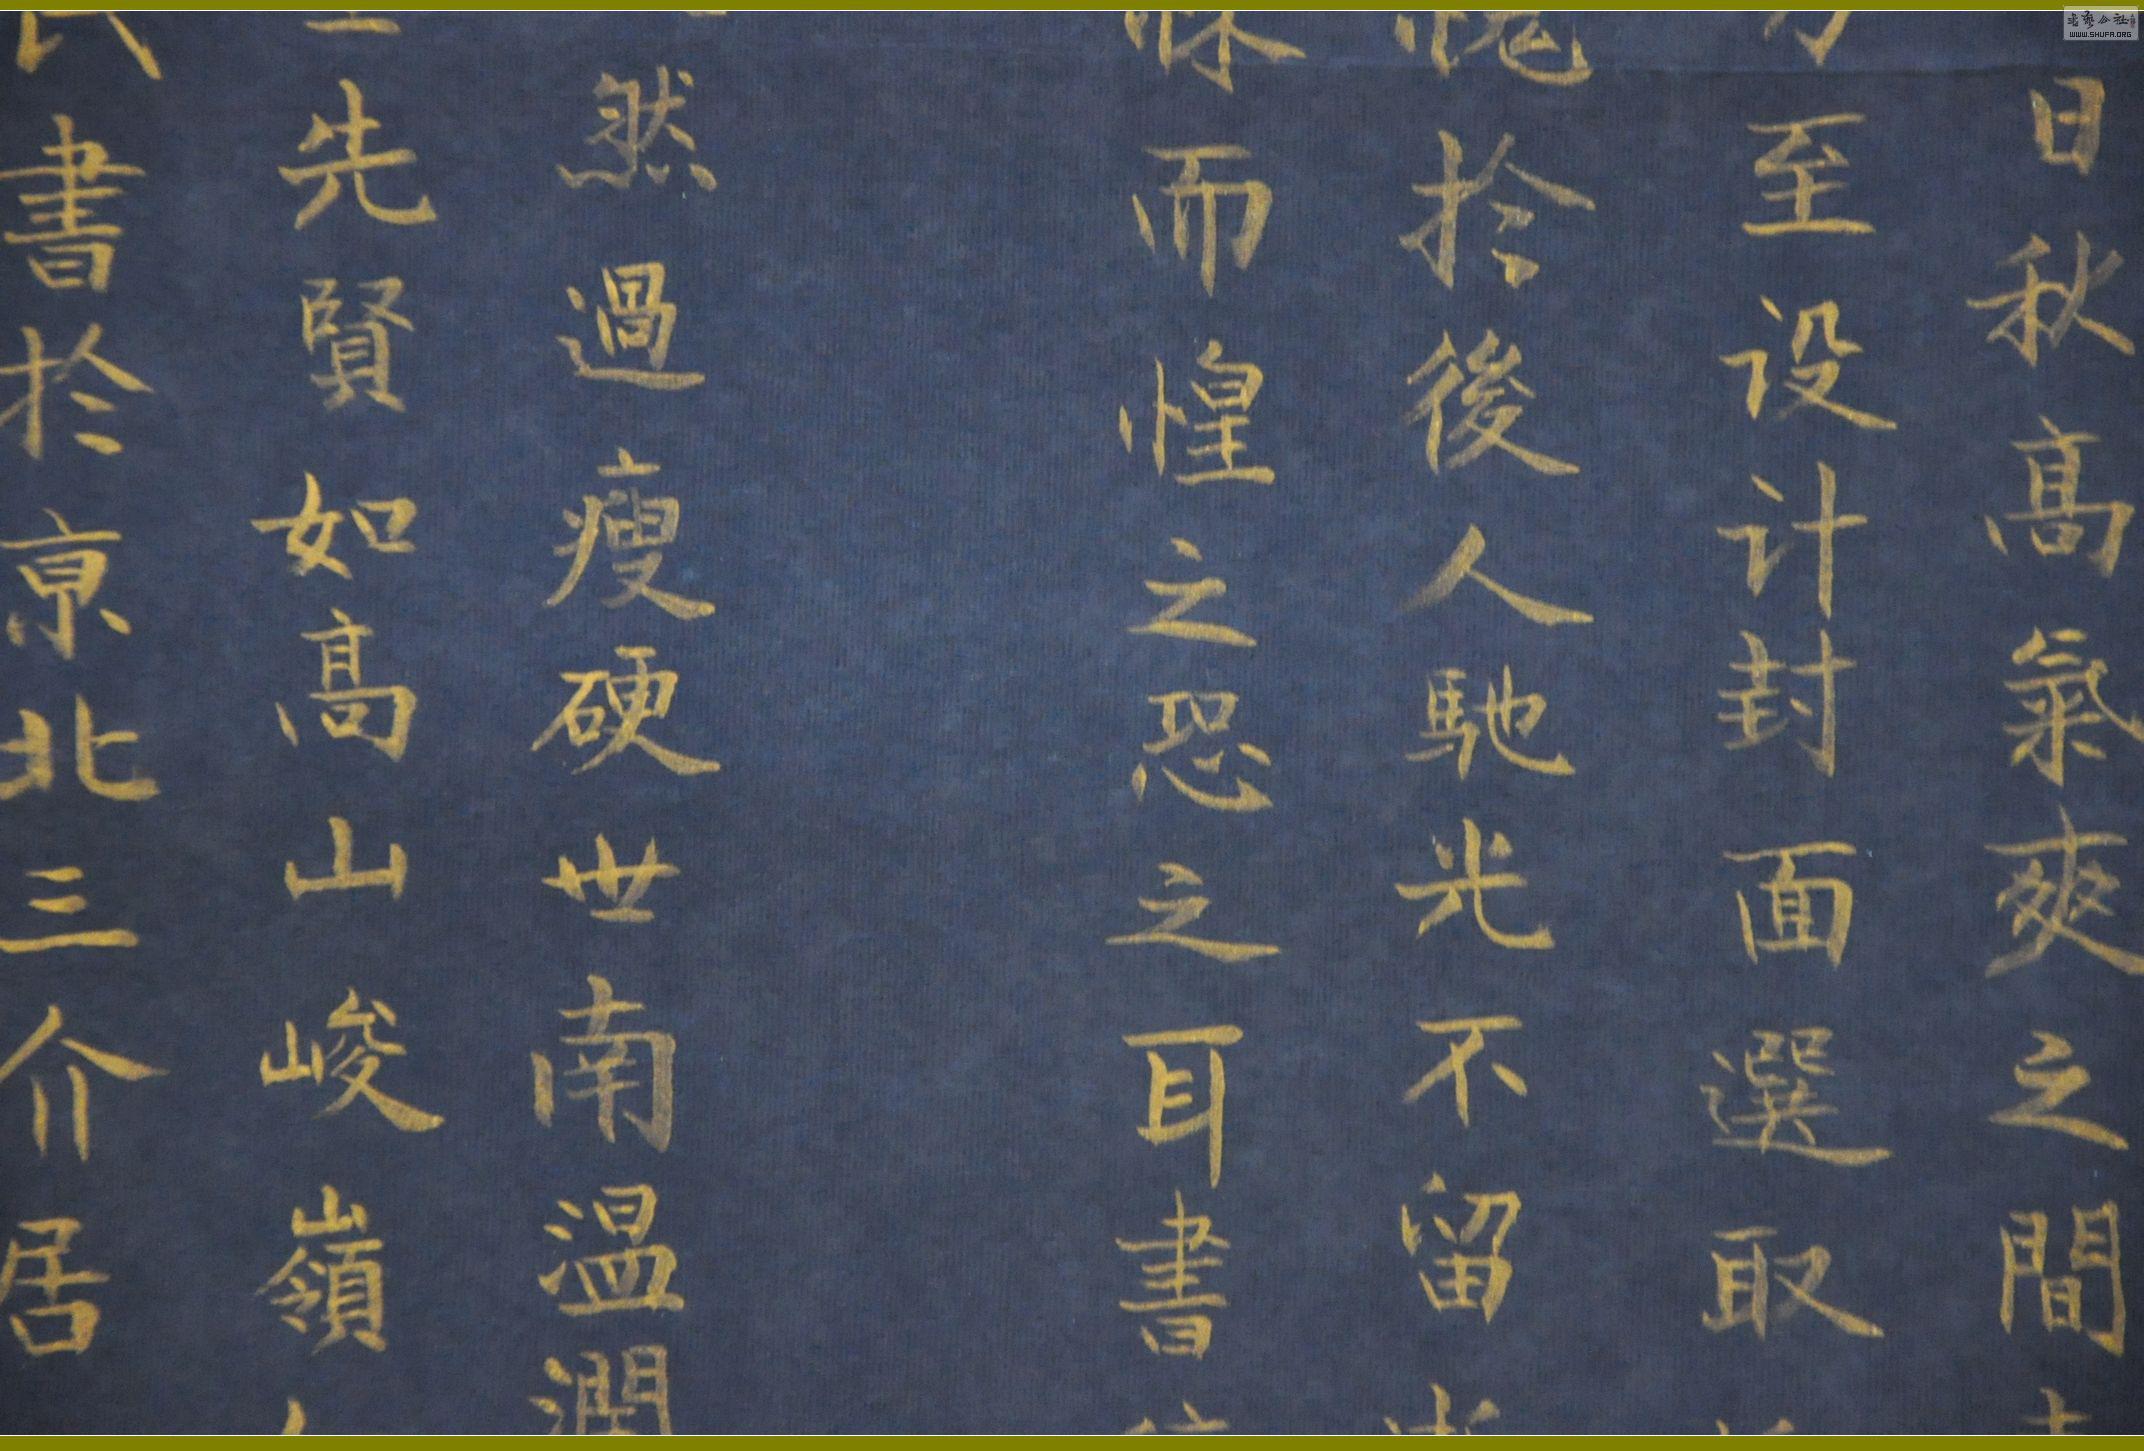 日秋高氣爽之間
至设计封面選取
愧於後人馳光不留
而惶之恐之耳書
然過瘦硬世南溫潤
先賢如高山峻嶺
書於京北三介居
書藝公社
WWW.SHUFA.ORG